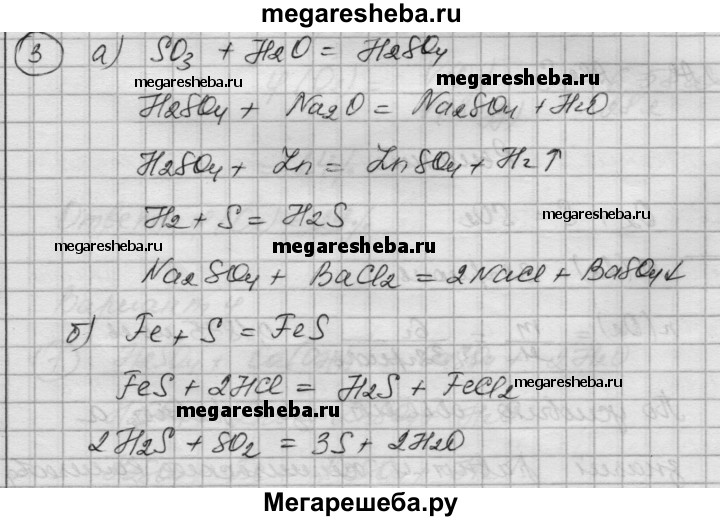 megaresheba.ru
3 а) SO3 + H2O = H2SO4
megaresheba.ru megaresheba.ru
H2SO4 + Na2O = Na2SO4 + H2O
H2SO4 + Zn = ZnSO4 + H2↑
H2 + S = H2S
megaresheba.ru
megaresheba.ru megaresheba.ru
Na2SO4 + BaCl2 = 2NaCl + BaSO4↓
б) Fe + S = FeS
FeS + 2HCl = H2S + FeCl2
megaresheba.ru
megaresheba.ru
2H2S + SO2 = 3S + 2H2O
Мегарешеба.ру